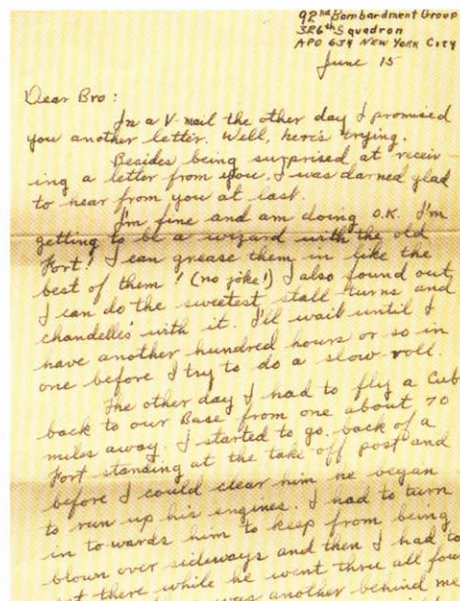 92nd Bombardment Group
326th Squadron
APO 634 NEW YORK CITY
June 15
Dear Bro:
In a V-mail the other day I promised
you another letter. Well, here's trying.
Besides being surprised at receiv-
ing a letter from you, I was darned glad
to hear from you at last.
I'm fine and am doing O.K. I'm
getting to be a wizard with the old
Fort! I can grease them in like the
best of them! (no joke!) I also found out
I can do the sweetest stall turns and
chandelles with it. I'll wait until I
have another hundred hours or so in
one before I try to do a slow roll.
The other day I had to fly a Cub
back to our Base from one about 70
miles away. I started to go back of a
Fort standing at the take off post and
before I could clear him he began
to run up his engines. I had to turn
in towards him to keep from being
blown over sideways and then I had to
there while he went thru all four
was another behind me